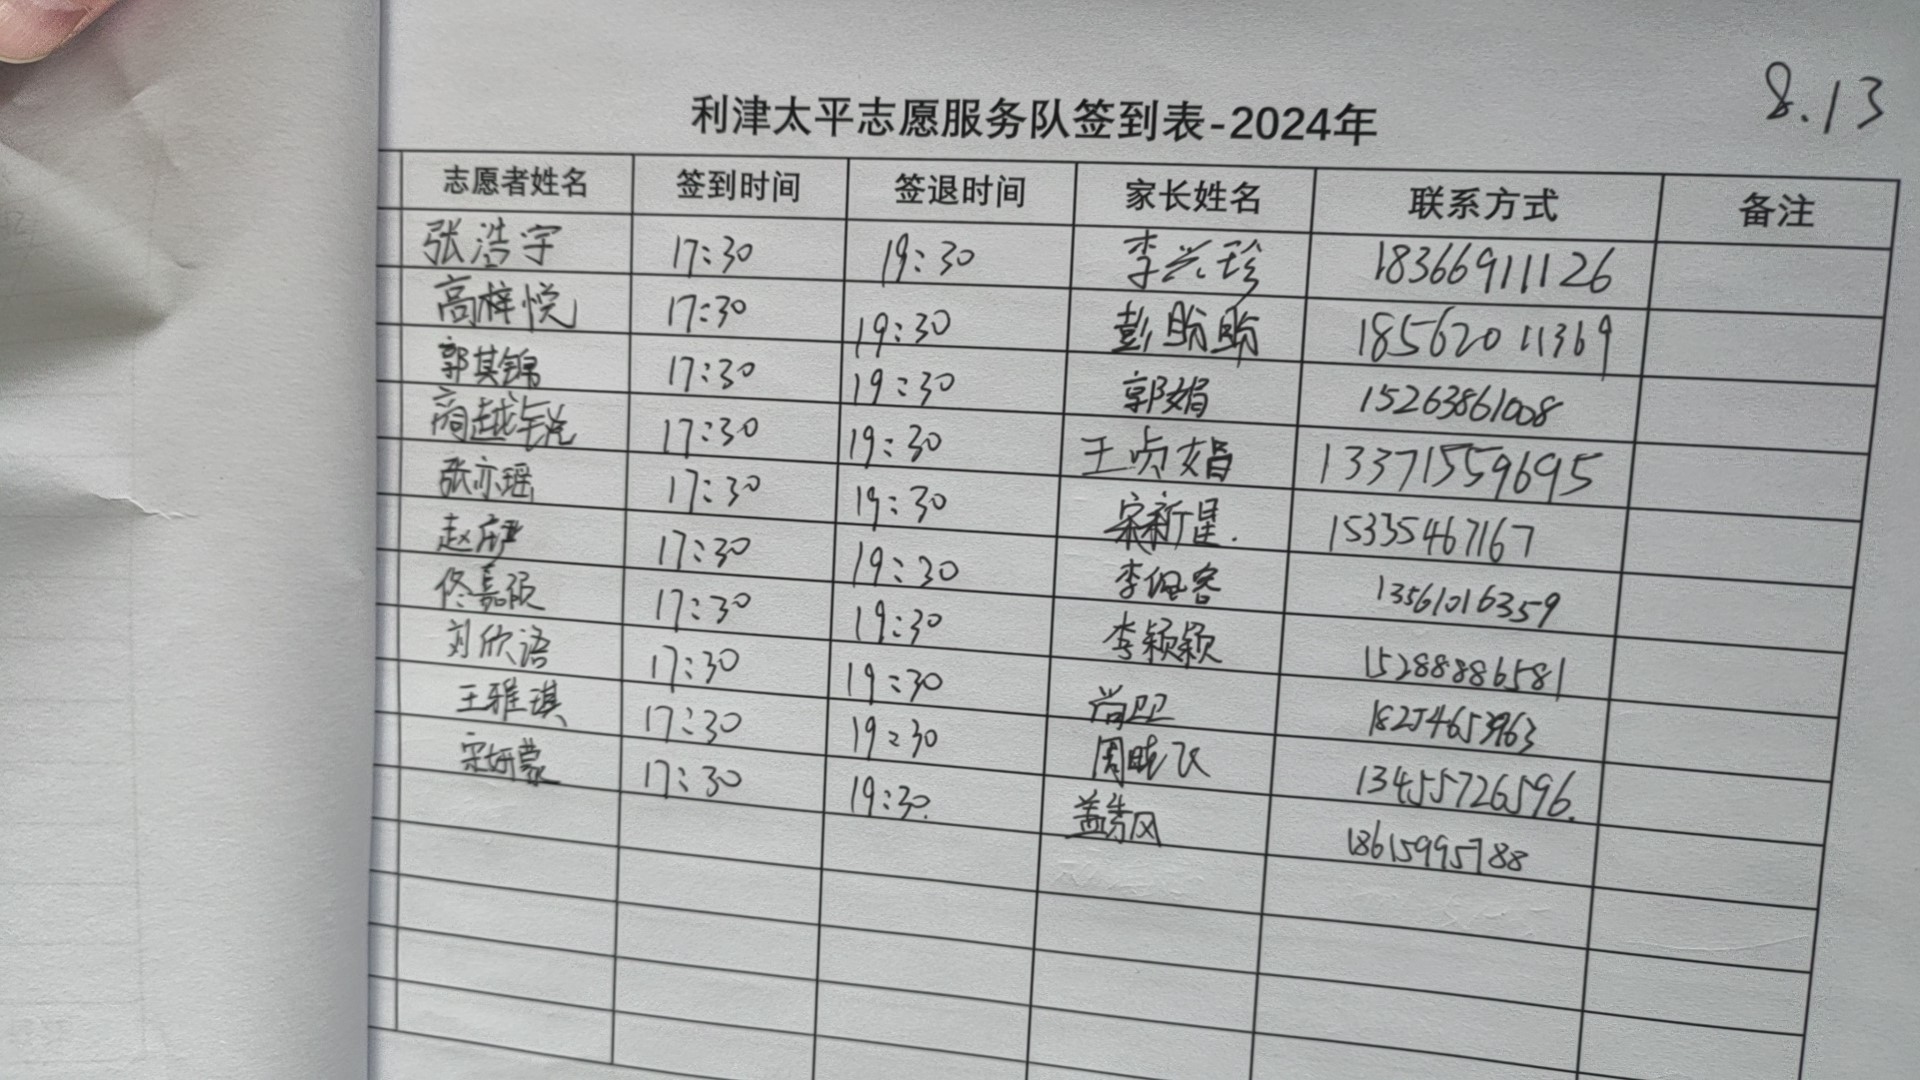 8.13
利津太平志愿服务队签到表-2024年
志愿者姓名 签到时间 签退时间 家长姓名 联系方式 备注
张浩宇 17:30 19:30 李兴珍 18366911126
高梓悦 17:30 19:30 彭盼盼 18562011369
郭其锦 17:30 19:30 郭娟 15263861008
商越锐 17:30 19:30 王贞娟 13371559695
张亦瑶 17:30 19:30 宋新星. 15335467167
赵 17:30 19:30 李佩容 13561016359
佟嘉硕 17:30 19:30 李颖颖 15288886581
刘欣语 17:30 19:30 尚卫卫 18254653963
王雅琪 17:30 19:30 周晓飞 13455726596.
宋妍蒙 17:30 19:30. 盖秀风 18615995788